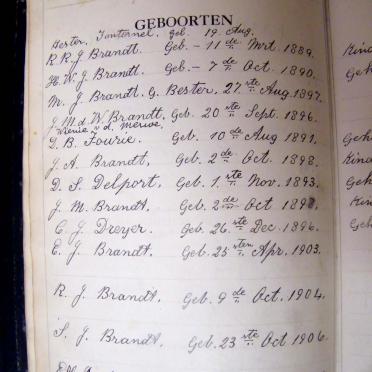 GEBOORTEN
Hester, Fonternel, Geb. 19 Aug.
R R. J Brandt. Geb. - 11 de Mrt. 1889.
H. W. J Brandt. Geb. - 7 de Oct. 1890.
M. J Brandt. G. Bester, 27 ste Aug. 1897.
J. M. d. W Brandt. Geb. 20 ste Sept. 1896.
v. d. Merwe
B. Fourie. Geb. 10 de Aug 1891.
J. A. Brandt, Geb. 2 de Oct. 1898.
D. S. Delport, Geb. 1. ste Nov. 1893.
J. M. Brandt. Geb. 2 de Oct
C. J. Dreyer. Geb. 26 ste Dec. 1896.
E. J. Brandt. Geb. 25 sten Apr. 1903.
R. J. Brandt. Geb. 9 de Oct. 1904.
S. J. Brandt. Geb. 23 ste Oct 1906.
Kin
Geh
Geh
Kin
Geh
Kin
Geb